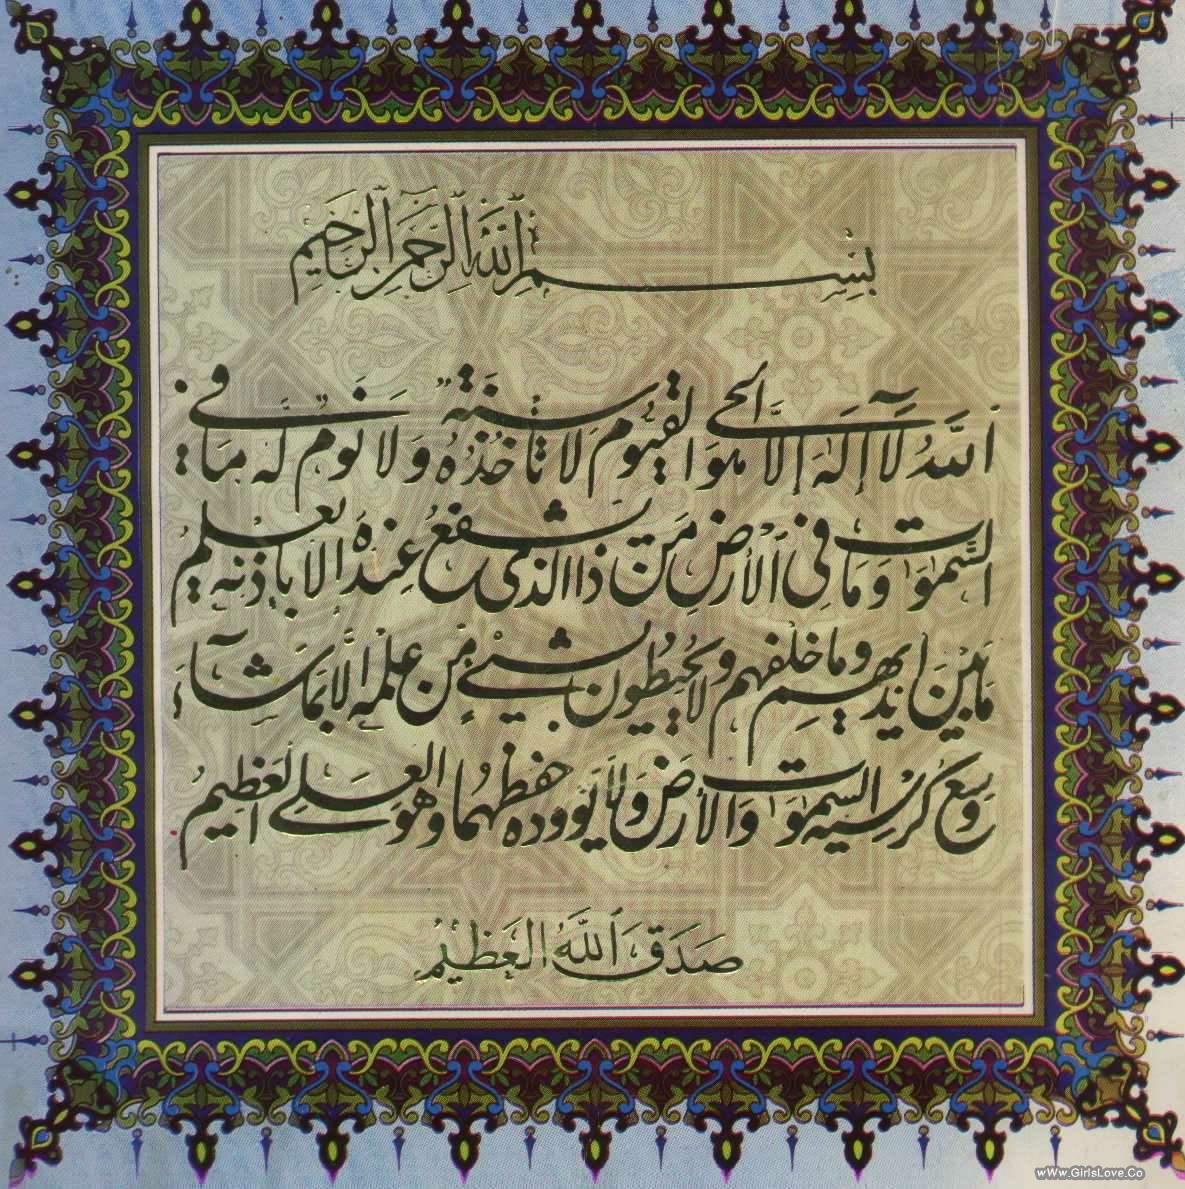 بِسْمِ اللَّهِ الرَّحْمَٰنِ الرَّحِيمِ
اَللَّهُ لَآ إِلَهَ إِلَّا هُوَ الْحَيُّ الْقَيُّومُ لَا تَأْخُذُهُ سِنَةٌ وَلَا نَوْمٌ لَهُ مَا فِي
السَّمٰوٰتِ وَمَا فِي الْأَرْضِ مَن ذَا الَّذِي يَشْفَعُ عِنْدَهُ إِلَّا بِإِذْنِهِ يَعْلَمُ
مَا بَيْنَ أَيْدِيهِمْ وَمَا خَلْفَهُمْ وَلَا يُحِيطُونَ بِشَيْءٍ مِّنْ عِلْمِهِ إِلَّا بِمَا شَآءَ
وَسِعَ كُرْسِيُّهُ السَّمٰوٰتِ وَالْأَرْضَ وَلَا يَؤُودُهُ حِفْظُهُمَا وَهُوَ الْعَلِيُّ الْعَظِيمُ
صَدَقَ اللَّهُ الْعَظِيمُ
wWw.GirlsLove.Co